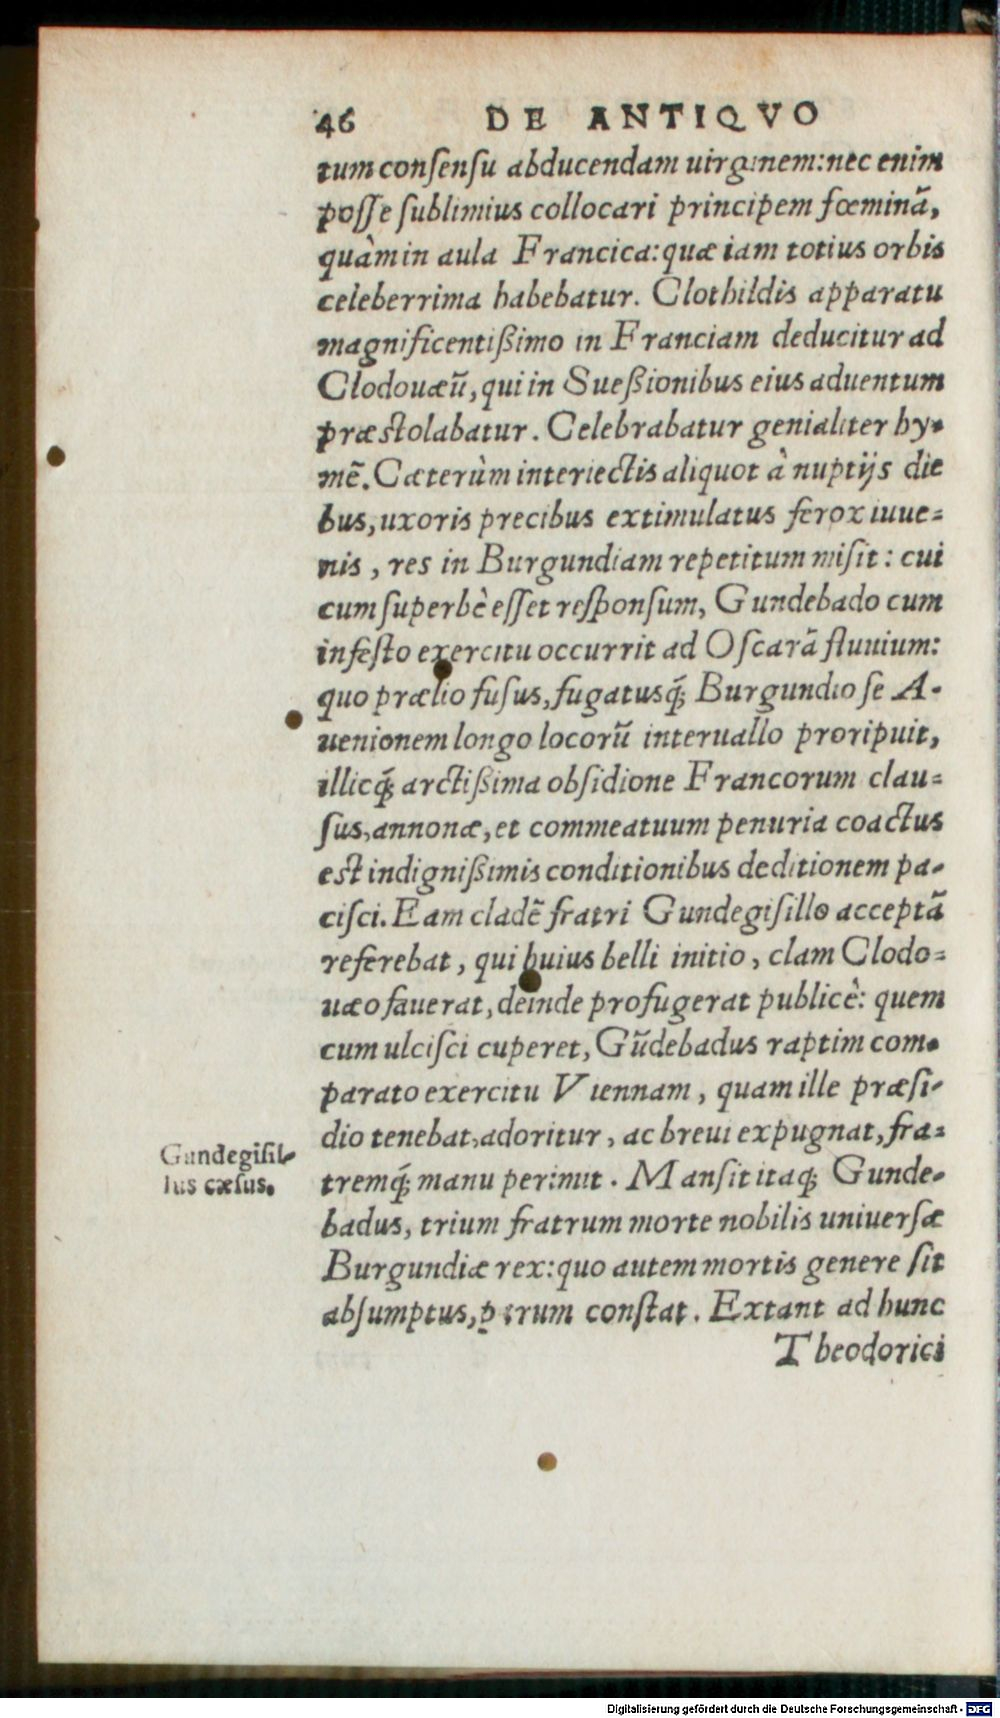 46 DE ANTIQVO
tum conſenſu abducendam uirginem: nec enim
poſſe ſublimius collocari principem fœminã,
quàm in aula Francica: quæ iam totius orbis
celeberrima habebatur. Clothildis apparatu
magnificentißimo in Franciam deducitur ad
Clodouæũ, qui in Sueßionibus eius aduentum
præſtolabatur. Celebrabatur genialiter hy-
mẽ. Cæterùm interiectis aliquot à nuptijs die
bus, uxoris precibus extimulatus ferox iuue=
nis, res in Burgundiam repetitum miſit: cui
cum ſuperbè eſſet reſponſum, Gundebado cum
infeſto exercitu occurrit ad Oſcarã fluuium:
quo prælio fuſus, fugatusq́; Burgundio ſe A-
uenionem longo locorũ interuallo proripuit,
illicq́; arctißima obſidione Francorum clau=
ſus, annonæ, et commeatuum penuria coactus
eſt indignißimis conditionibus deditionem pa-
ciſci. Eam cladẽ fratri Gundegiſillo acceptã
referebat, qui huius belli initio, clam Clodo=
uæo fauerat, deinde profugerat publicè: quem
cum ulciſci cuperet, Gũdebadus raptim com-
parato exercitu Viennam, quam ille præſi-
dio tenebat, adoritur, ac breui expugnat, fra=
Gundegiſil-
lus cæſus.
tremq́; manu perimit. Manſit itaq; Gunde-
badus, trium fratrum morte nobilis uniuerſæ
Burgundiæ rex: quo autem mortis genere ſit
abſumptus, parum conſtat. Extant ad hunc
Theodorici
Digitalisierung gefördert durch die Deutsche Forschungsgemeinschaft - DFG